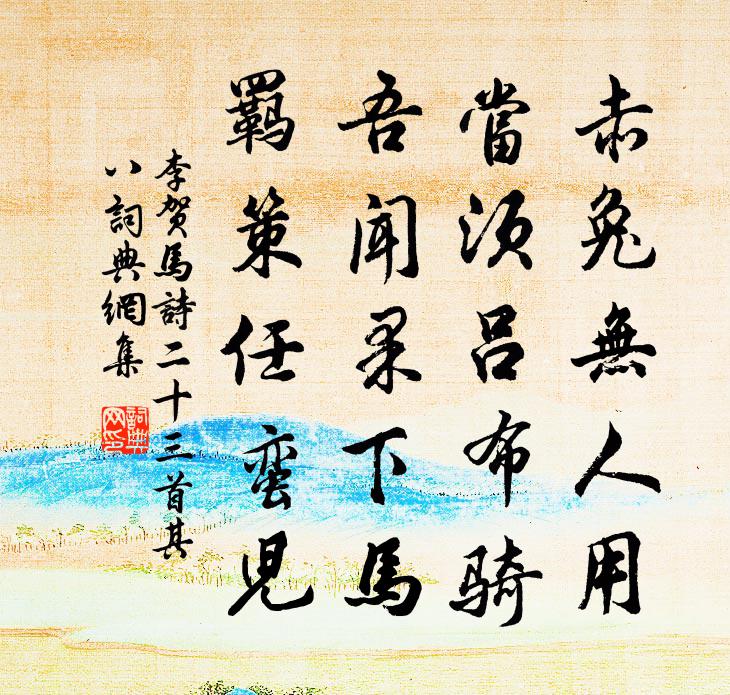 赤兔無人用
當須呂布騎
吾聞果下馬
羈策任蛮児
李贺馬詩二十三首其
八詞典網集
詞典
网印